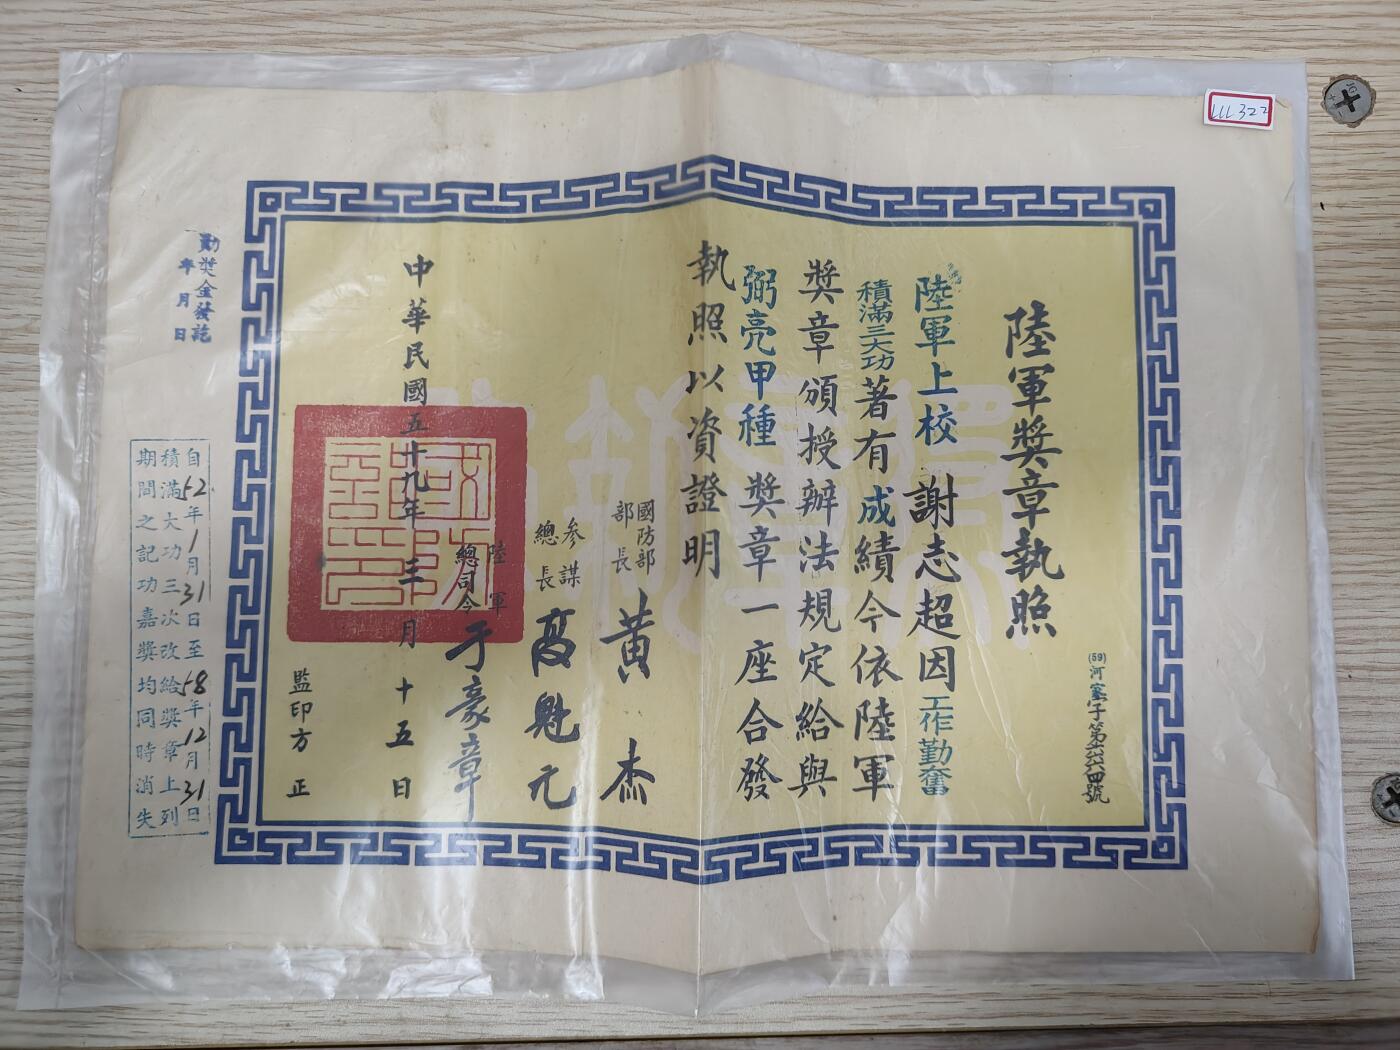 LLL322
陸軍獎章執照
(59)河塞字第
號
陸軍上校謝志超因工作勤奮
積滿三大功著有成績今依陸軍
獎章頒授辦法規定給與
弼亮甲種獎章一座合發
執照以資證明
國防部
部長
黃杰
參謀
總長
高魁元
陸軍
總司令
于豪章
中華民國五十九年三月十五日
監印方正
勳獎金發訖
年月日
自52年1月31日至58年12月31日
積滿大功三次改給獎章上列
期間之記功嘉獎均同時消失